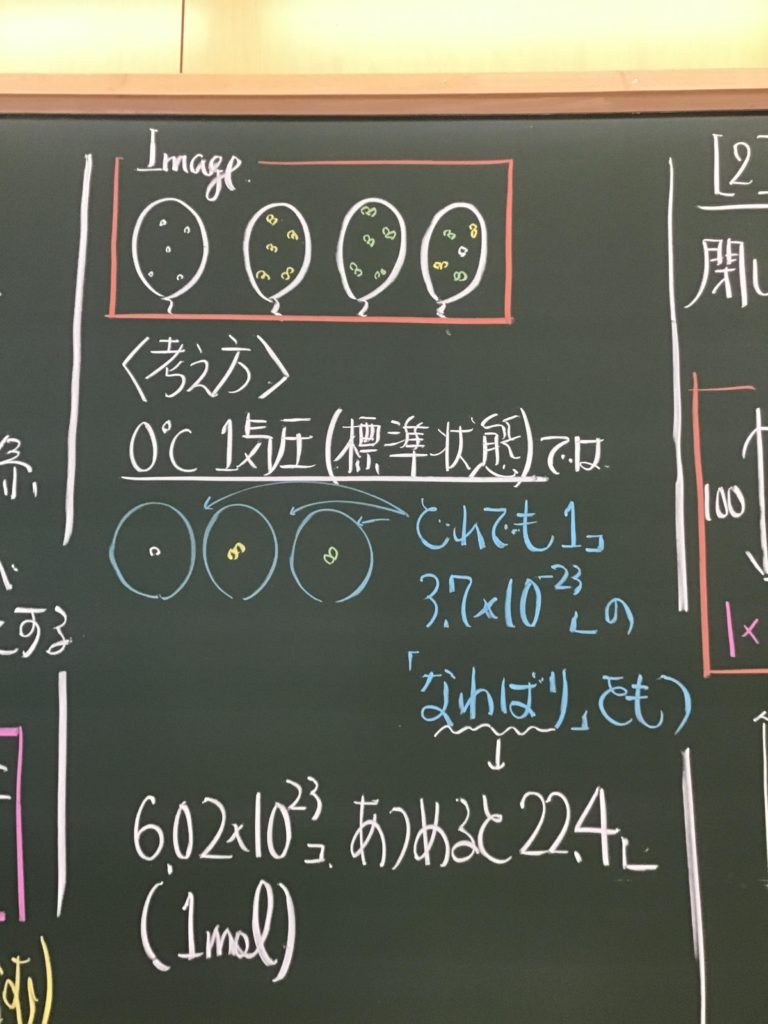 Image
〈考え方〉
0℃ 1気圧(標準状態)では
どれでも1コ
3.7×10⁻²³Lの
「なわばり」をもつ
6.02×10²³コ あつめると22.4L
(1mol)
とする
[2]
閉
100
1×